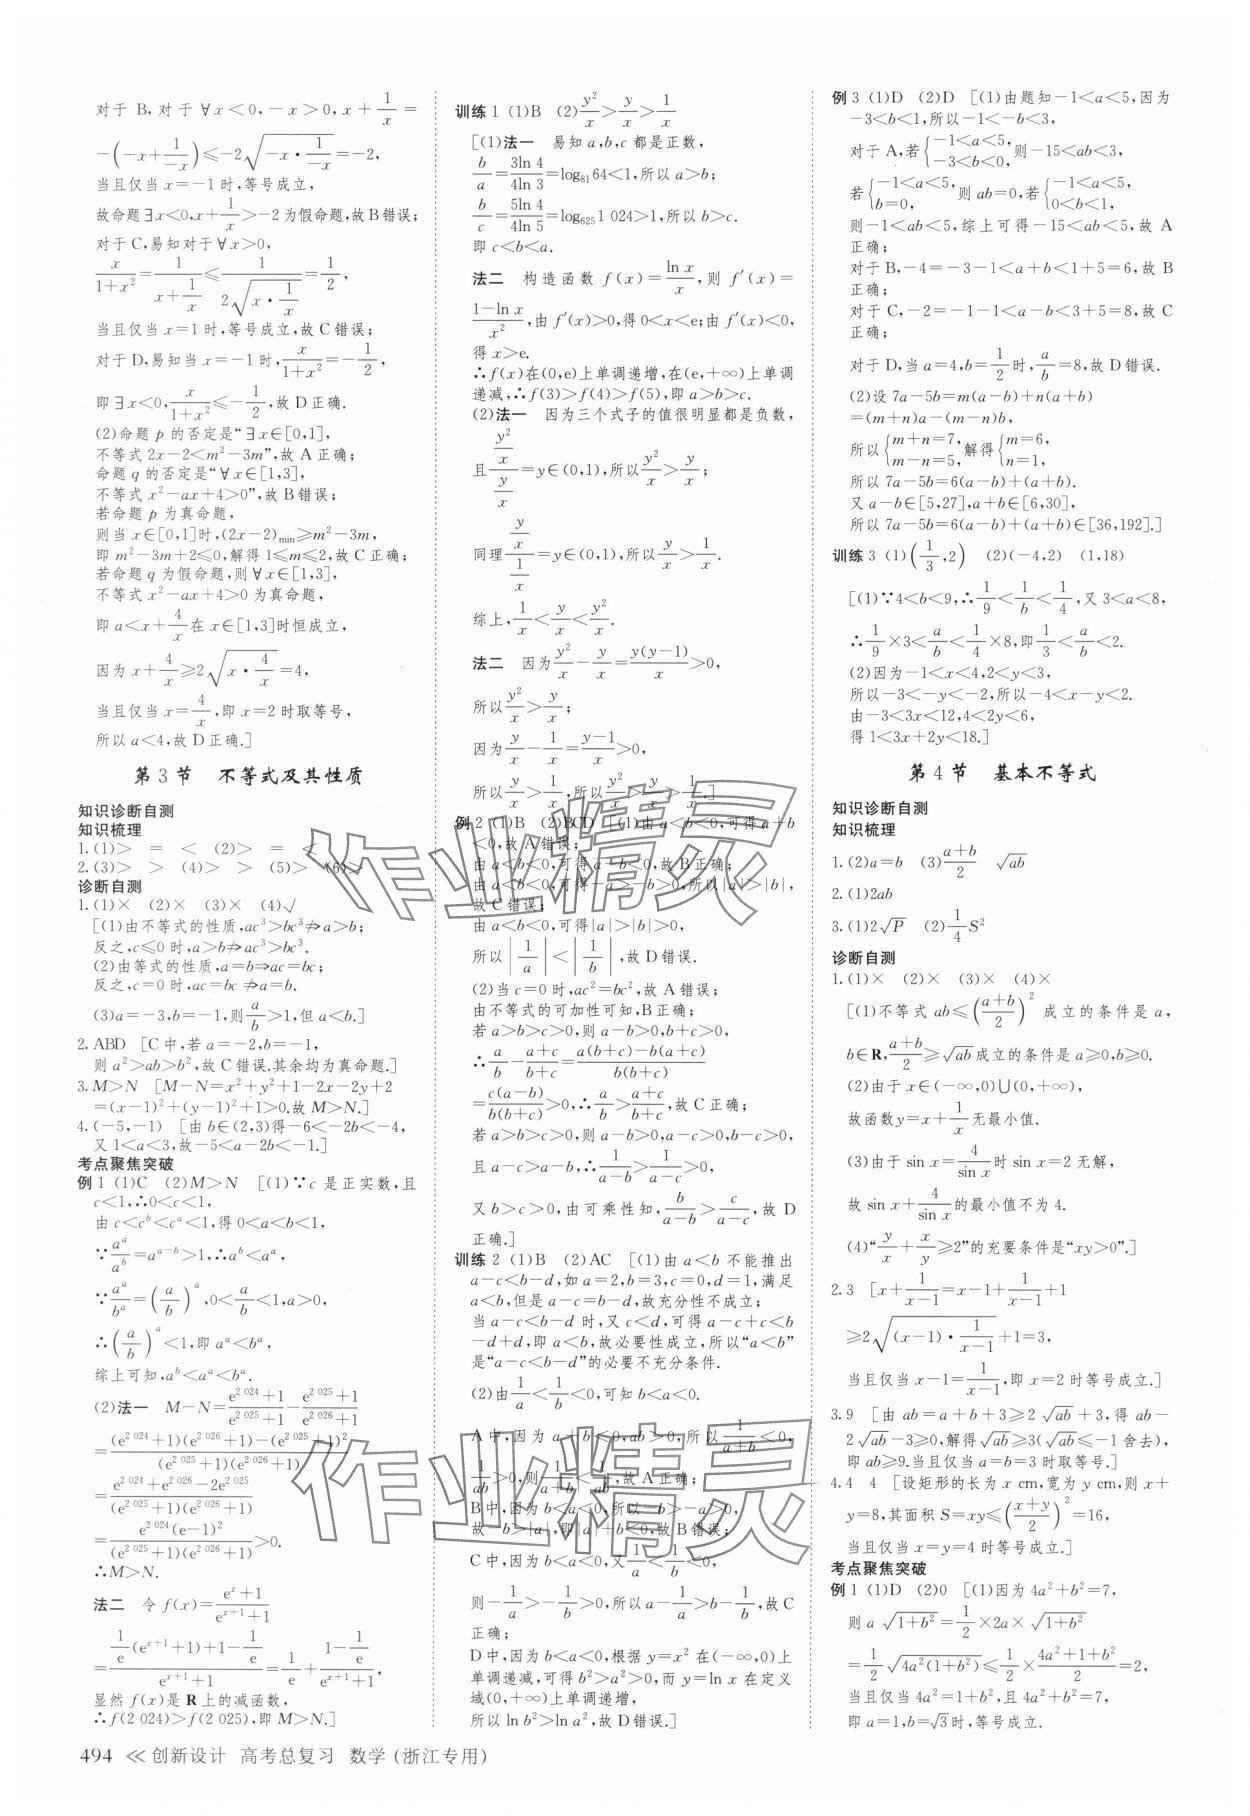 对于 B,对于∀x<0,-x>0,x+1/x=
-(-x+1/(-x))≤-2√(-x·1/(-x))=-2,
当且仅当 x=-1 时,等号成立,
故命题∃x<0,x+1/x>-2 为假命题,故 B 错误;
对于 C,易知对于∀x>0,
x/(1+x²)=1/(x+1/x)≤1/(2√(x·1/x))=1/2,
当且仅当 x=1 时,等号成立,故 C 错误;
对于 D,易知当 x=-1 时,x/(1+x²)=-1/2,
即∃x<0,x/(1+x²)≤-1/2,故 D 正确.
(2)命题 p 的否定是“∃x∈[0,1],
不等式 2x-2<m²-3m”,故 A 正确;
命题 q 的否定是“∀x∈[1,3],
不等式 x²-ax+4>0”,故 B 错误;
若命题 p 为真命题,
则当 x∈[0,1]时,(2x-2)min≥m²-3m,
即 m²-3m+2≤0,解得 1≤m≤2,故 C 正确;
若命题 q 为假命题,则∀x∈[1,3],
不等式 x²-ax+4>0 为真命题,
即 a<x+4/x 在 x∈[1,3]时恒成立,
因为 x+4/x≥2√(x·4/x)=4,
当且仅当 x=4/x,即 x=2 时取等号,
所以 a<4,故 D 正确.]
第 3 节 不等式及其性质
知识诊断自测
知识梳理
1.(1)> = < (2)> = <
2.(3)> > (4)> > (5)> (6)>
诊断自测
1.(1)× (2)× (3)× (4)√
[(1)由不等式的性质,ac³>bc³⇏a>b;
反之,c≤0 时,a>b⇏ac³>bc³.
(2)由等式的性质,a=b⇒ac=bc;
反之,c=0 时,ac=bc⇏a=b.
(3)a=-3,b=-1,则a/b>1,但 a<b.]
2.ABD [C 中,若 a=-2,b=-1,
则 a²>ab>b²,故 C 错误.其余均为真命题.]
3.M>N [M-N=x²+y²+1-2x-2y+2
=(x-1)²+(y-1)²+1>0.故 M>N.]
4.(-5,-1) [由 b∈(2,3)得-6<-2b<-4,
又 1<a<3,故-5<a-2b<-1.]
考点聚焦突破
例 1 (1)C (2)M>N [(1)∵c 是正实数,且
c<1,∴0<c<1,
由 c<c^b<c^a<1,得 0<a<b<1,
∵a^a/a^b=a^(a-b)>1,∴a^b<a^a,
∵a^a/b^a=(a/b)^a,0<a/b<1,a>0,
∴(a/b)^a<1,即 a^a<b^a,
综上可知,a^b<a^a<b^a.
(2)法一 M-N=(e^2 024+1)/(e^2 025+1)-(e^2 025+1)/(e^2 026+1)
=((e^2 024+1)(e^2 026+1)-(e^2 025+1)²)/((e^2 025+1)(e^2 026+1))
=(e^2 024+e^2 026-2e^2 025)/((e^2 025+1)(e^2 026+1))
=(e^2 024(e-1)²)/((e^2 025+1)(e^2 026+1))>0.
∴M>N.
法二 令 f(x)=(e^x+1)/(e^(x+1)+1)
=(1/e(e^(x+1)+1)+1-1/e)/(e^(x+1)+1)=1/e+(1-1/e)/(e^(x+1)+1),
显然 f(x)是 R 上的减函数,
∴f(2 024)>f(2 025),即 M>N.]
训练 1 (1)B (2)y²/x>y/x>1/x
[(1)法一 易知 a,b,c 都是正数,
b/a=3ln 4/4ln 3=log₈₁64<1,所以 a>b;
b/c=5ln 4/4ln 5=log₆₂₅1 024>1,所以 b>c.
即 c<b<a.
法二 构造函数 f(x)=ln x/x,则 f′(x)=
(1-ln x)/x²,由 f′(x)>0,得 0<x<e;由 f′(x)<0,
得 x>e.
∴f(x)在(0,e)上单调递增,在(e,+∞)上单调
递减,∴f(3)>f(4)>f(5),即 a>b>c.
(2)法一 因为三个式子的值很明显都是负数,
且(y²/x)/(y/x)=y∈(0,1),所以y²/x>y/x;
同理(y/x)/(1/x)=y∈(0,1),所以y/x>1/x.
综上,1/x<y/x<y²/x.
法二 因为y²/x-y/x=y(y-1)/x>0,
所以y²/x>y/x;
因为y/x-1/x=(y-1)/x>0,
所以y/x>1/x,所以y²/x>y/x>1/x.]
例 2 (1)B (2)BCD [(1)由 a<b<0,可得 a+b
<0,故 A 错误;
由 a<b<0,可得 a-b<0,故 B 正确;
由 a<b<0,可得-a>-b>0,所以|a|>|b|,
故 C 错误;
由 a<b<0,可得|a|>|b|>0,
所以|1/a|<|1/b|,故 D 错误.
(2)当 c=0 时,ac²=bc²,故 A 错误;
由不等式的可加性可知,B 正确;
若 a>b>c>0,则 a-b>0,b+c>0,
∴a/b-(a+c)/(b+c)=(a(b+c)-b(a+c))/(b(b+c))
=c(a-b)/(b(b+c))>0,∴a/b>(a+c)/(b+c),故 C 正确;
若 a>b>c>0,则 a-b>0,a-c>0,b-c>0,
且 a-c>a-b,∴1/(a-b)>1/(a-c)>0,
又 b>c>0,由可乘性知,b/(a-b)>c/(a-c),故 D
正确.]
训练 2 (1)B (2)AC [(1)由 a<b 不能推出
a-c<b-d,如 a=2,b=3,c=0,d=1,满足
a<b,但是 a-c=b-d,故充分性不成立;
当 a-c<b-d 时,又 c<d,可得 a-c+c<b
-d+d,即 a<b,故必要性成立,所以“a<b”
是“a-c<b-d”的必要不充分条件.
(2)由1/a<1/b<0,可知 b<a<0.
A 中,因为 a+b<0,ab>0,所以1/(a+b)<0,
1/ab>0,则1/(a+b)<1/ab,故 A 正确;
B 中,因为 b<a<0,所以-b>-a>0,
故-b>|a|,即|a|+b<0,故 B 错误;
C 中,因为 b<a<0,又1/a<1/b<0,
则-1/a>-1/b>0,所以 a-1/a>b-1/b,故 C
正确;
D 中,因为 b<a<0,根据 y=x² 在(-∞,0)上
单调递减,可得 b²>a²>0,而 y=ln x 在定义
域(0,+∞)上单调递增,
所以 ln b²>ln a²,故 D 错误.]
例 3 (1)D (2)D [(1)由题知-1<a<5,因为
-3<b<1,所以-1<-b<3,
对于 A,若{-1<a<5, -3<b<0,则-15<ab<3,
若{-1<a<5, b=0,则 ab=0,若{-1<a<5, 0<b<1,
则-1<ab<5,综上可得-15<ab<5,故 A
正确;
对于 B,-4=-3-1<a+b<1+5=6,故 B
正确;
对于 C,-2=-1-1<a-b<3+5=8,故 C
正确;
对于 D,当 a=4,b=1/2时,a/b=8,故 D 错误.
(2)设 7a-5b=m(a-b)+n(a+b)
=(m+n)a-(m-n)b,
所以{m+n=7, m-n=5,解得{m=6, n=1,
所以 7a-5b=6(a-b)+(a+b).
又 a-b∈[5,27],a+b∈[6,30],
所以 7a-5b=6(a-b)+(a+b)∈[36,192].]
训练 3 (1)(1/3,2) (2)(-4,2) (1,18)
[(1)∵4<b<9,∴1/9<1/b<1/4,又 3<a<8,
∴1/9×3<a/b<1/4×8,即1/3<a/b<2.
(2)因为-1<x<4,2<y<3,
所以-3<-y<-2,所以-4<x-y<2.
由-3<3x<12,4<2y<6,
得 1<3x+2y<18.]
第 4 节 基本不等式
知识诊断自测
知识梳理
1.(2)a=b (3)(a+b)/2 √ab
2.(1)2ab
3.(1)2√P (2)1/4S²
诊断自测
1.(1)× (2)× (3)× (4)×
[(1)不等式 ab≤((a+b)/2)² 成立的条件是 a,
b∈R,(a+b)/2≥√ab成立的条件是 a≥0,b≥0.
(2)由于 x∈(-∞,0)∪(0,+∞),
故函数 y=x+1/x无最小值.
(3)由于 sin x=4/sin x时 sin x=2 无解,
故 sin x+4/sin x的最小值不为 4.
(4)“y/x+x/y≥2”的充要条件是“xy>0”.]
2.3 [x+1/(x-1)=x-1+1/(x-1)+1
≥2√((x-1)·1/(x-1))+1=3,
当且仅当 x-1=1/(x-1),即 x=2 时等号成立.]
3.9 [由 ab=a+b+3≥2√ab+3,得 ab-
2√ab-3≥0,解得√ab≥3(√ab≤-1 舍去),
即 ab≥9.当且仅当 a=b=3 时取等号.]
4.4 4 [设矩形的长为 x cm,宽为 y cm,则 x+
y=8,其面积 S=xy≤((x+y)/2)²=16,
当且仅当 x=y=4 时等号成立.]
考点聚焦突破
例 1 (1)D (2)0 [(1)因为 4a²+b²=7,
则 a√(1+b²)=1/2×2a×√(1+b²)
=1/2√(4a²(1+b²))≤1/2×(4a²+1+b²)/2=2,
当且仅当 4a²=1+b²,且 4a²+b²=7,
即 a=1,b=√3时,等号成立.
494 ≪创新设计 高考总复习 数学(浙江专用)
作业精灵
作业精灵